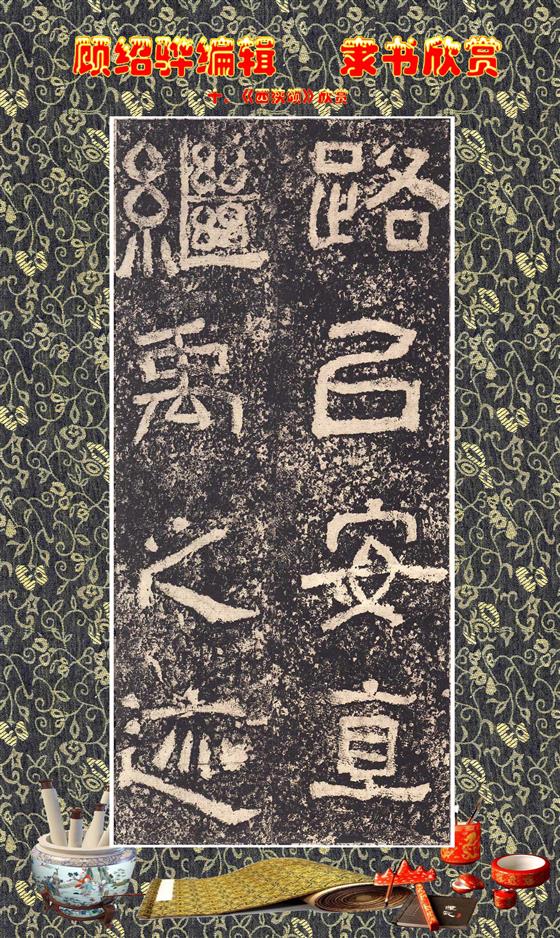 顾绍骅编辑 隶书欣赏
十、《西狭颂》欣赏
路㠯安直
繼禹之迹